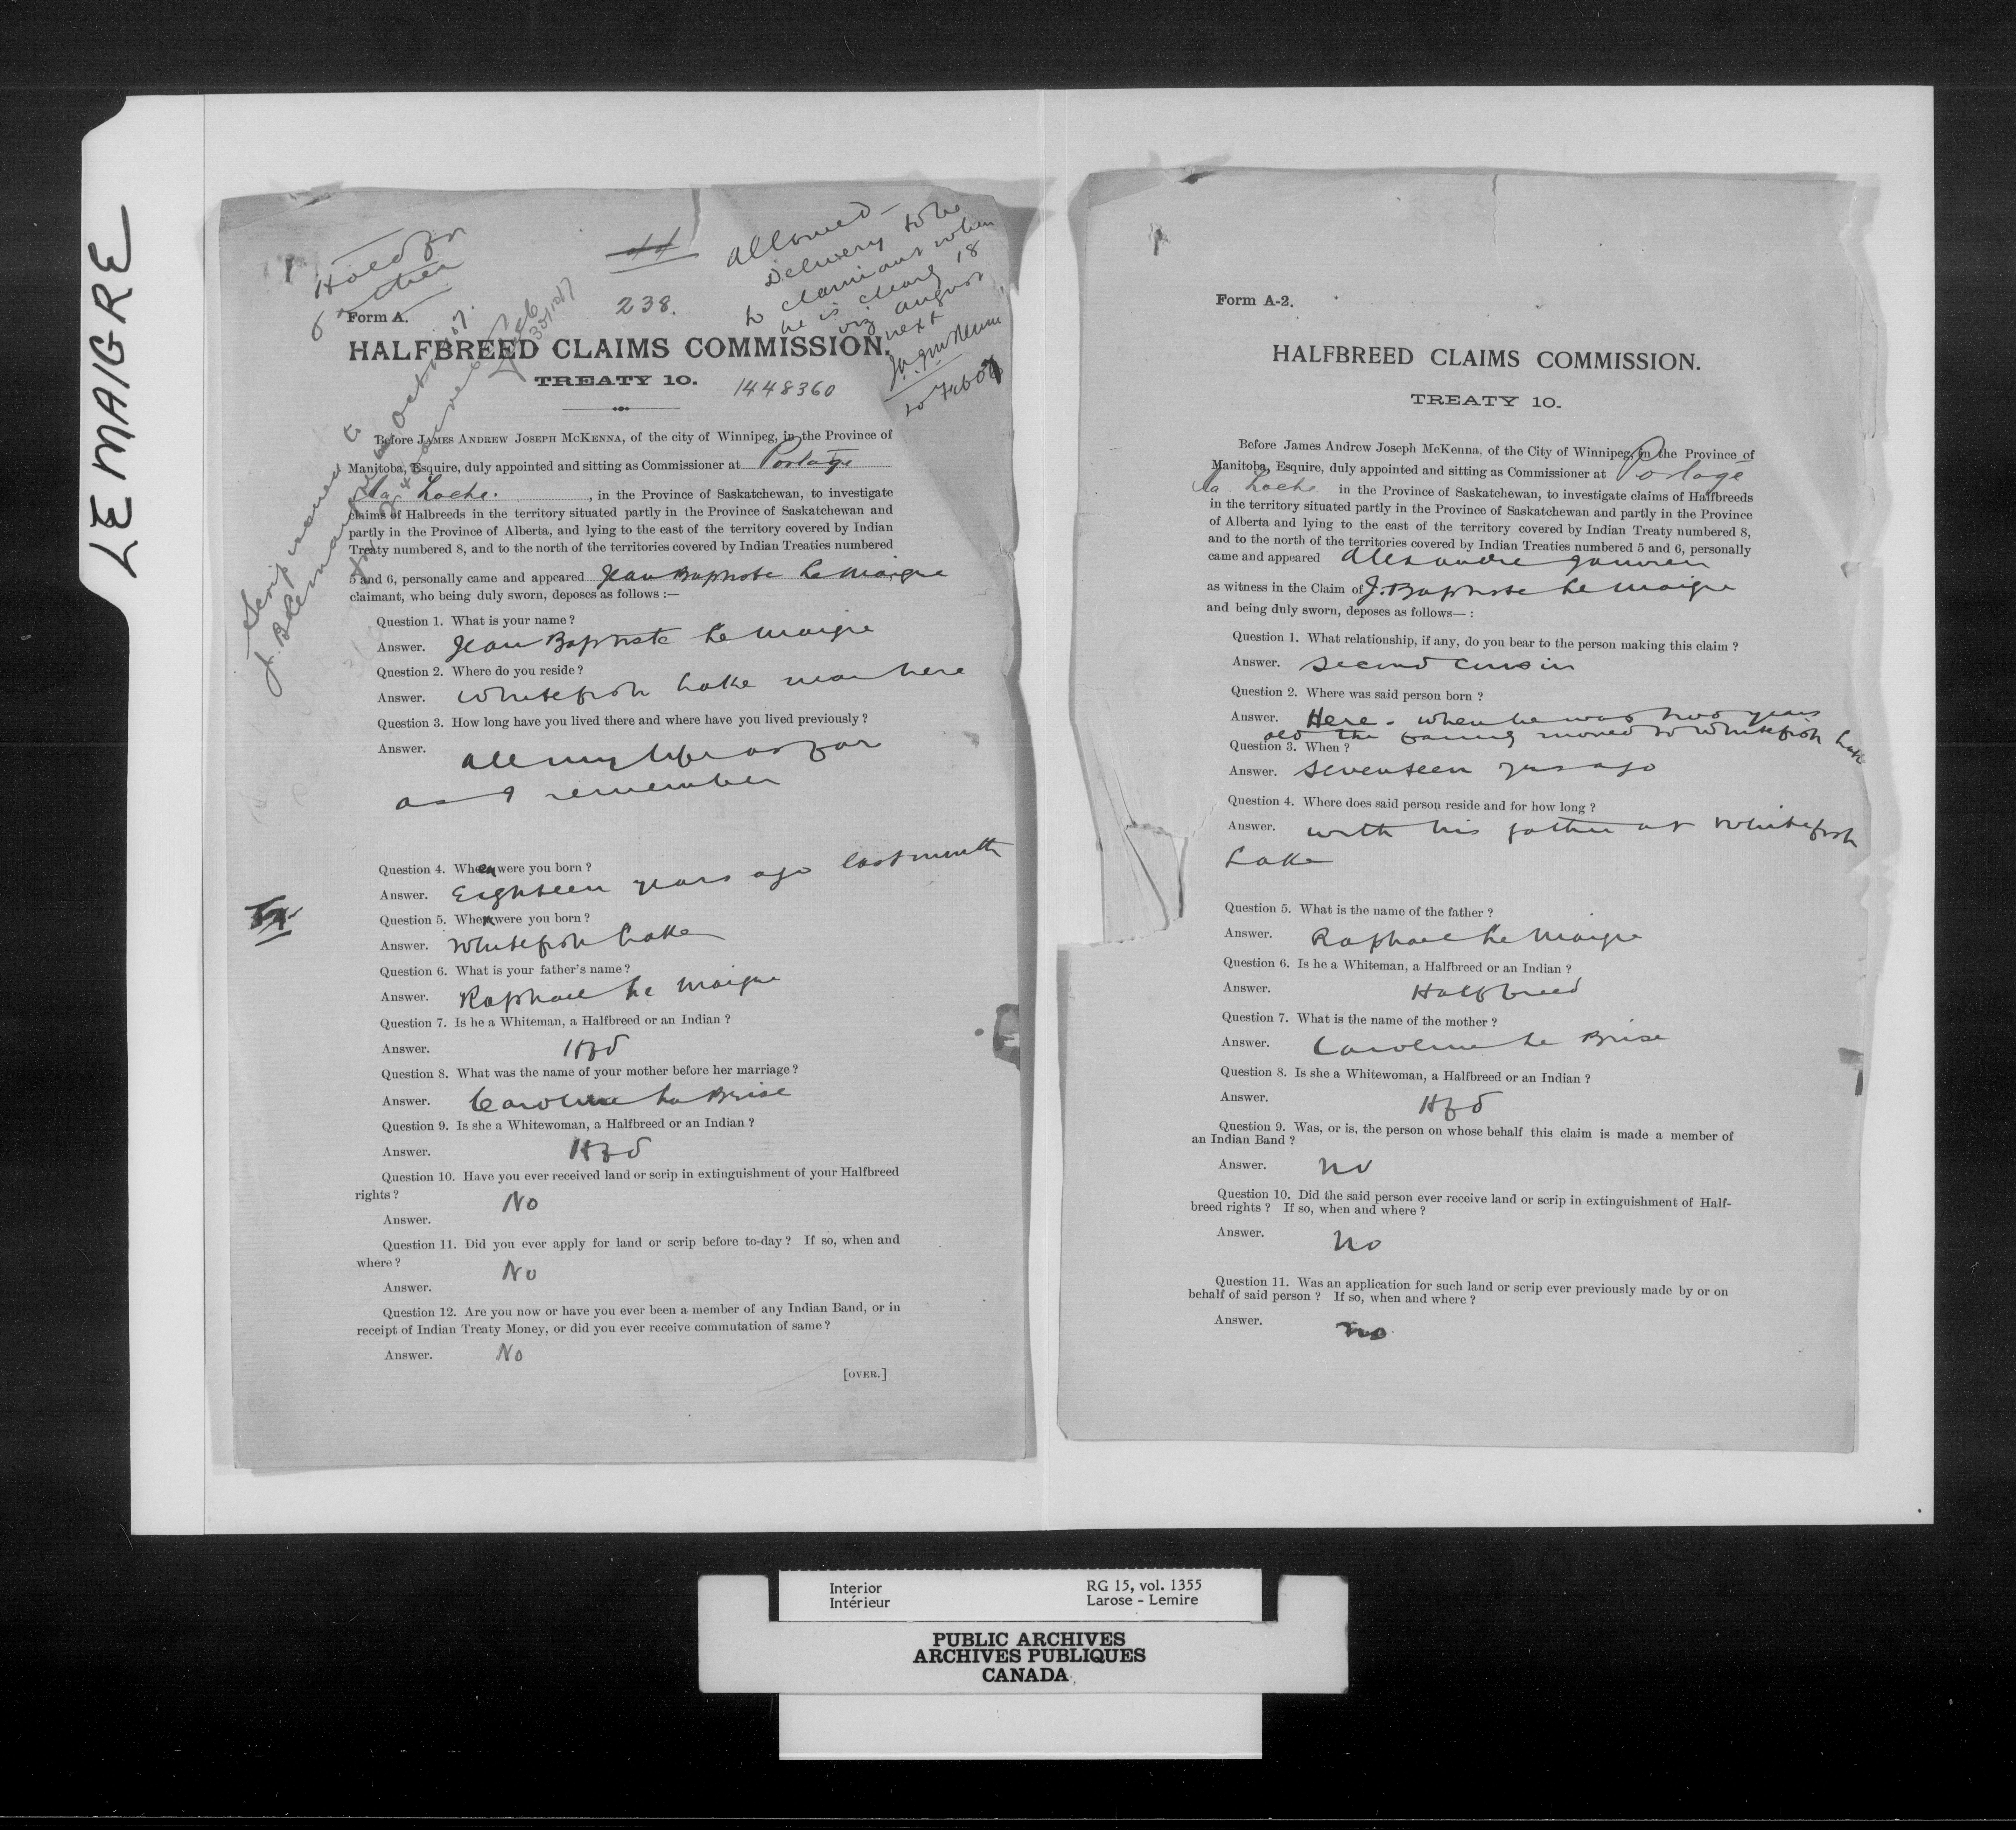 LEMAIGRE
Hold for
238.
Allowed—
Delivery to be
to claimant when
he is clearly 18
viz August
next
Form A.
HALFBREED CLAIMS COMMISSION.
TREATY 10.
1448360
Scrip issued to
Before JAMES ANDREW JOSEPH MCKENNA, of the city of Winnipeg, in the Province of
Manitoba, Esquire, duly appointed and sitting as Commissioner at Portage
La Loche. , in the Province of Saskatchewan, to investigate
claims of Halbreeds in the territory situated partly in the Province of Saskatchewan and
partly in the Province of Alberta, and lying to the east of the territory covered by Indian
Treaty numbered 8, and to the north of the territories covered by Indian Treaties numbered
5 and 6, personally came and appeared Jean Baptiste Le Maigre
claimant, who being duly sworn, deposes as follows :—
Question 1. What is your name?
Answer. Jean Baptiste Le Maigre
Question 2. Where do you reside?
Answer. Whitefish Lake near here
Question 3. How long have you lived there and where have you lived previously?
Answer. All my life as far
as I remember
Question 4. When were you born?
Answer. Eighteen years ago last month
Question 5. Where were you born?
Answer. Whitefish Lake
Question 6. What is your father's name?
Answer. Raphael Le Maigre
Question 7. Is he a Whiteman, a Halfbreed or an Indian?
Answer. Hfd
Question 8. What was the name of your mother before her marriage?
Answer. Caroline La Brise
Question 9. Is she a Whitewoman, a Halfbreed or an Indian?
Answer. Hfd
Question 10. Have you ever received land or scrip in extinguishment of your Halfbreed
rights?
Answer. No
Question 11. Did you ever apply for land or scrip before to-day? If so, when and
where?
Answer. No
Question 12. Are you now or have you ever been a member of any Indian Band, or in
receipt of Indian Treaty Money, or did you ever receive commutation of same?
Answer. No
[OVER.]
Form A-2.
HALFBREED CLAIMS COMMISSION.
TREATY 10.
Before James Andrew Joseph McKenna, of the City of Winnipeg, in the Province of
Manitoba, Esquire, duly appointed and sitting as Commissioner at Portage
La Loche in the Province of Saskatchewan, to investigate claims of Halfbreeds
in the territory situated partly in the Province of Saskatchewan and partly in the Province
of Alberta and lying to the east of the territory covered by Indian Treaty numbered 8,
and to the north of the territories covered by Indian Treaties numbered 5 and 6, personally
came and appeared Alexandre Janvier
as witness in the Claim of J. Baptiste Le Maigre
and being duly sworn, deposes as follows—:
Question 1. What relationship, if any, do you bear to the person making this claim?
Answer. Second cousin
Question 2. Where was said person born?
Answer. Here - when he was two years
old the family moved to Whitefish Lake
Question 3. When?
Answer. Seventeen yrs ago
Question 4. Where does said person reside and for how long?
Answer. with his father at Whitefish
Lake
Question 5. What is the name of the father?
Answer. Raphael Le Maigre
Question 6. Is he a Whiteman, a Halfbreed or an Indian?
Answer. Halfbreed
Question 7. What is the name of the mother?
Answer. Caroline La Brise
Question 8. Is she a Whitewoman, a Halfbreed or an Indian?
Answer. Hfd
Question 9. Was, or is, the person on whose behalf this claim is made a member of
an Indian Band?
Answer. No
Question 10. Did the said person ever receive land or scrip in extinguishment of Half-
breed rights? If so, when and where?
Answer. No
Question 11. Was an application for such land or scrip ever previously made by or on
behalf of said person? If so, when and where?
Answer. No
Interior
Intérieur
RG 15, vol. 1355
Larose - Lemire
PUBLIC ARCHIVES
ARCHIVES PUBLIQUES
CANADA